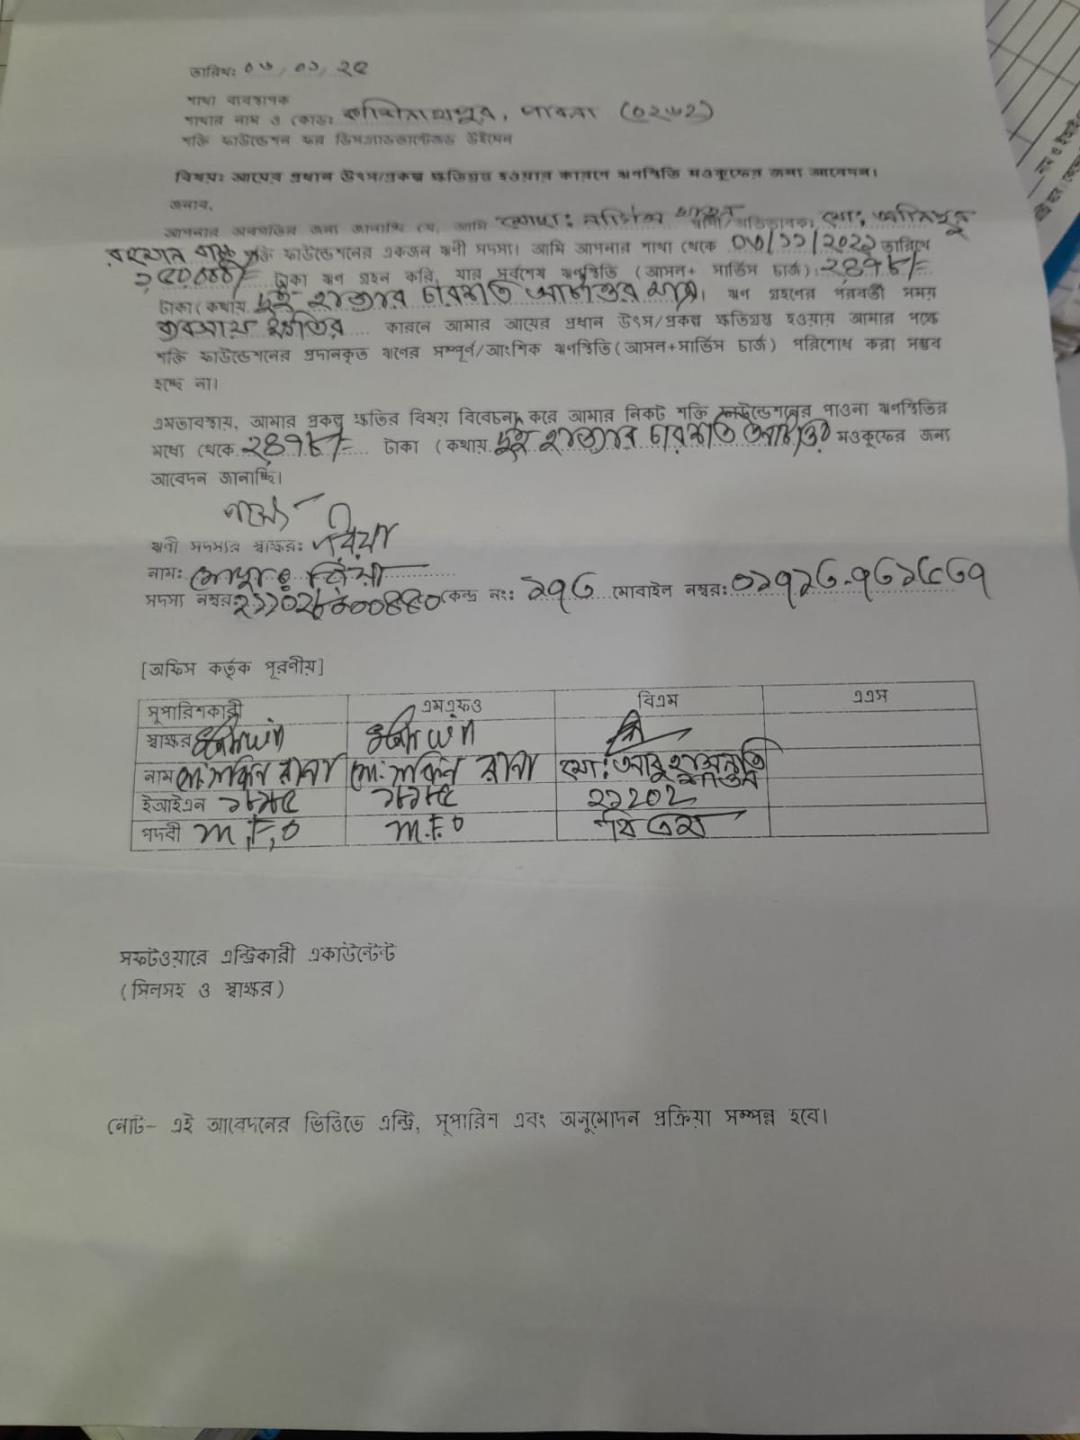 তারিখঃ ০৬/০১/২৫
শাখা ব্যবস্থাপক
শাখার নাম ও কোডঃ কাশিনাথপুর, পাবনা (০২৬২)
শক্তি ফাউন্ডেশন ফর ডিসএ্যাডভান্টেজড উইমেন
বিষয়ঃ আয়ের প্রধান উৎস/প্রকল্প ক্ষতিগ্রস্ত হওয়ার কারণে ঋণস্থিতি মওকুফের জন্য আবেদন।
জনাব,
আপনার অবগতির জন্য জানাচ্ছি যে, আমি মোছাঃ
শক্তি ফাউন্ডেশনের একজন ঋণী সদস্য। আমি আপনার শাখা থেকে তারিখে
টাকা ঋণ গ্রহন করি, যার সর্বশেষ ঋণস্থিতি (আসল+ সার্ভিস চার্জ) ২৪৭৮/=
টাকা (কথায় দুই হাজার চারশত আটাত্তর মাত্র। ঋণ গ্রহণের পরবর্তী সময়
ব্যবসায় ক্ষতির ... কারনে আমার আয়ের প্রধান উৎস/প্রকল্প ক্ষতিগ্রস্ত হওয়ায় আমার পক্ষে
শক্তি ফাউন্ডেশনের প্রদানকৃত ঋণের সম্পূর্ণ/আংশিক ঋণস্থিতি(আসল+সার্ভিস চার্জ) পরিশোধ করা সম্ভব
হচ্ছে না।
এমতাবস্থায়, আমার প্রকল্প ক্ষতির বিষয় বিবেচনা করে আমার নিকট শক্তি ফাউন্ডেশনের পাওনা ঋণস্থিতির
মধ্যে থেকে ২৪৭৮/= টাকা (কথায় দুই হাজার চারশত আটাত্তর মওকুফের জন্য
আবেদন জানাচ্ছি।
ঋণী সদস্যর স্বাক্ষরঃ
নামঃ মোছাঃ
সদস্য নম্বরঃ কেন্দ্র নংঃ ১৭৩ মোবাইল নম্বরঃ
[অফিস কর্তৃক পূরণীয়]
সুপারিশকারী এমএফও বিএম এএস
স্বাক্ষর
নাম মোঃ সাকিন রানা মোঃ সাকিন রানা মোঃ আবু
ইআইএন ২১২০২
পদবী M.F.O M.F.O বি এম
সফটওয়ারে এন্ট্রিকারী একাউন্টেন্ট
(সিলসহ ও স্বাক্ষর)
নোট- এই আবেদনের ভিত্তিতে এন্ট্রি, সুপারিশ এবং অনুমোদন প্রক্রিয়া সম্পন্ন হবে।